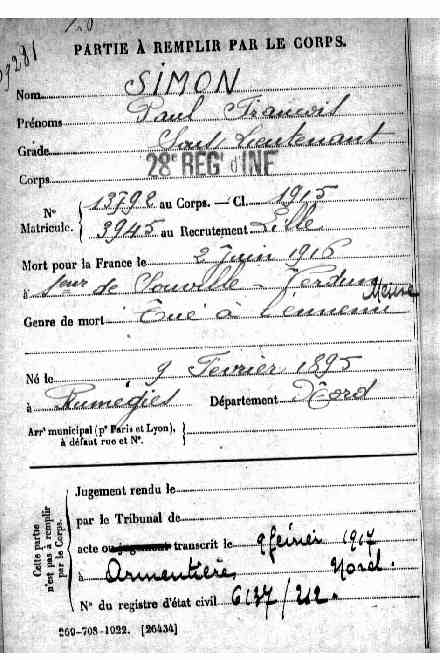 PARTIE À REMPLIR PAR LE CORPS.
Nom SIMON
Prénoms Paul François
Grade Sous Lieutenant
Corps 28e REGt d'INF
No Matricule. { 13792 au Corps. — Cl. 1915
3945 au Recrutement Lille
Mort pour la France le 2 Juin 1916
à de Souville - Verdun Meuse
Genre de mort Tué à l'ennemi
Né le 9 Fevrier 1895
à Rumegies Département Nord
Arrt municipal (pr Paris et Lyon), à défaut rue et No. {
Cette partie n'est pas à remplir par le Corps.
Jugement rendu le
par le Tribunal de
acte ou jugement transcrit le 9 février 1917
à Armentières Nord.
No du registre d'état civil 6137/212.
269-708-1922. [26434]